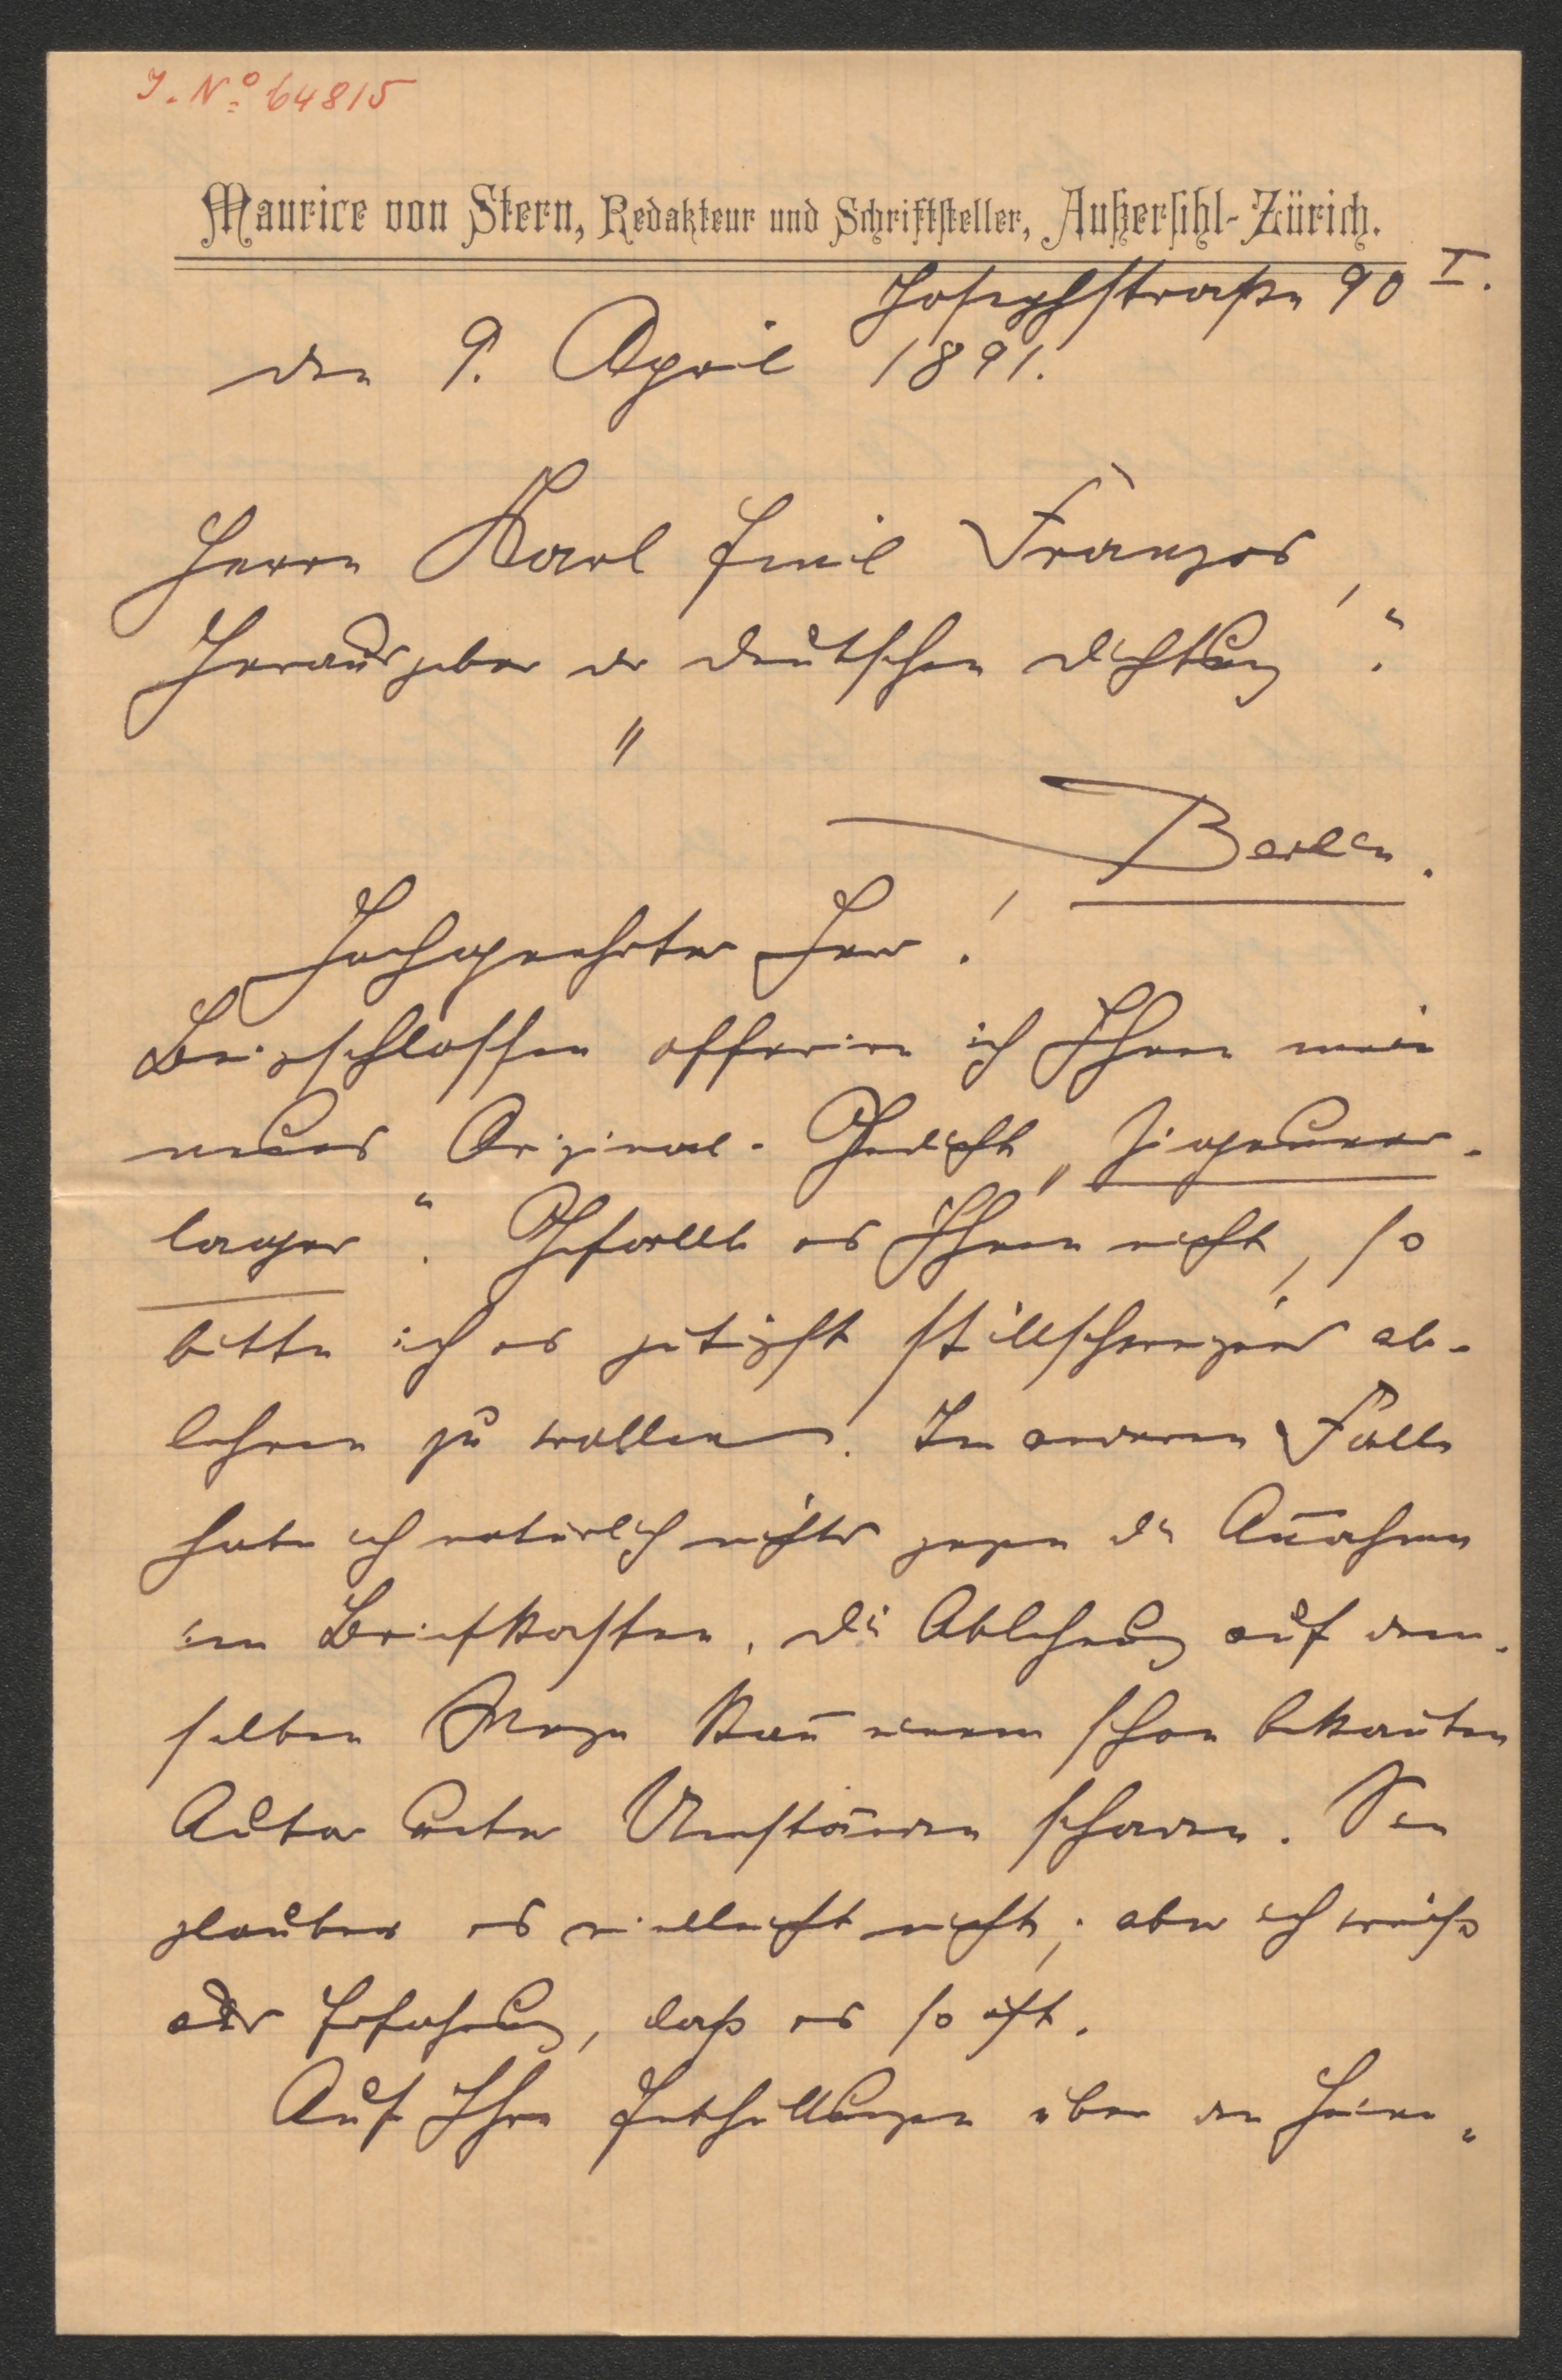 J. No 64815
Maurice von Stern, Redakteur und Schriftsteller, Außersihl-Zürich.
Josephstraße 90 I.
den 9. April 1891.
Herrn Karl Emil Franzos,
Herausgeber der „deutschen Dichtung“.
Berlin.
Hochgeehrter Herr!
Beigeschlossen offerire ich Ihnen mein
neues Original-Gedicht „Zigeuner-
lager“. Gefällt es Ihnen nicht, so
bitte ich es gütigst stillschweigend ab-
lehnen zu wollen. Im anderen Falle
habe ich natürlich nichts gegen die Annahme
im Briefkasten. Die Ablehnung auf dem-
selben Wege kann einem schon bekannten
Autor unter Umständen schaden. Sie
glauben es vielleicht nicht; aber ich weiß
aus Erfahrung, daß es so ist.
Auf Ihre Enthüllungen über den Heine-